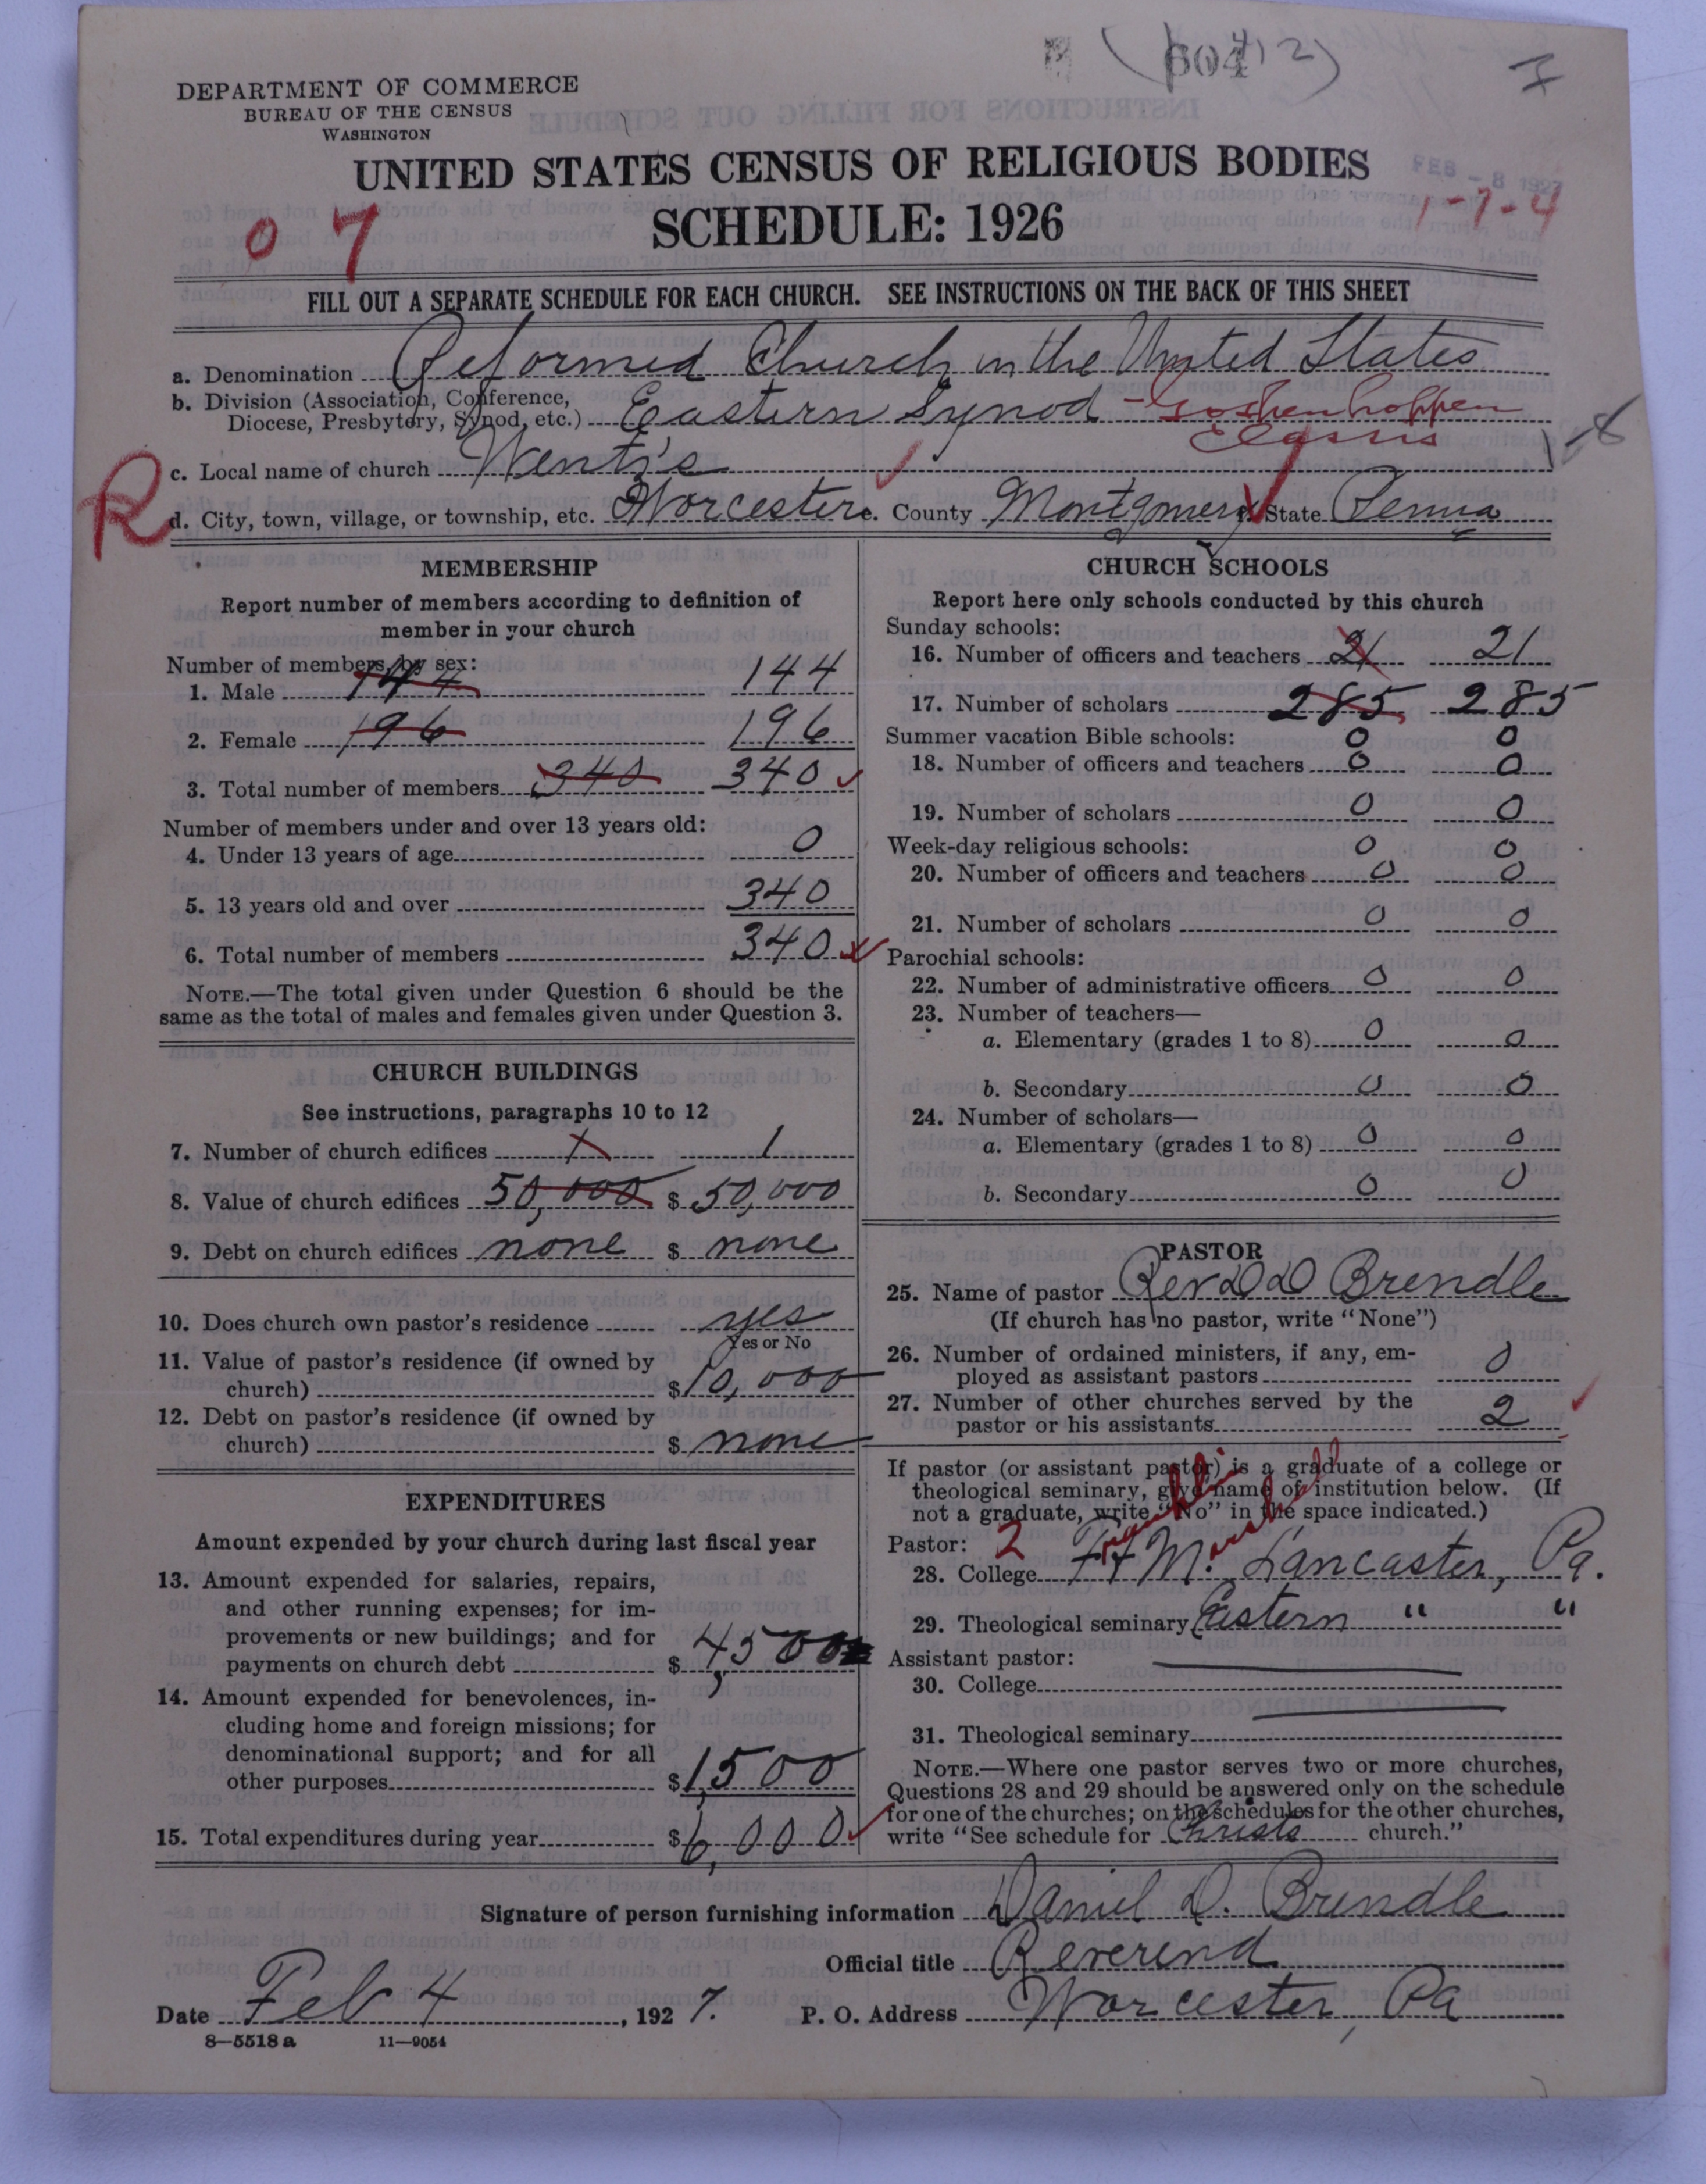 604
(412)
7
DEPARTMENT OF COMMERCE
BUREAU OF THE CENSUS
WASHINGTON
UNITED STATES CENSUS OF RELIGIOUS BODIES
FEB - 8 1927
1-7-4
0 7
SCHEDULE: 1926
FILL OUT A SEPARATE SCHEDULE FOR EACH CHURCH. SEE INSTRUCTIONS ON THE BACK OF THIS SHEET
a. Denomination Reformed Church in the United States
b. Division (Association, Conference, Diocese, Presbytery, Synod, etc.) Eastern Synod - Goshenhoppen
Classis
c. Local name of church Wentz's
R
d. City, town, village, or township, etc. Worcester e. County Montgomery f. State Penna
MEMBERSHIP
Report number of members according to definition of
member in your church
Number of members, by sex:
1. Male 144 144
2. Female 196 196
3. Total number of members 340 340
Number of members under and over 13 years old:
4. Under 13 years of age 0
5. 13 years old and over 340
6. Total number of members 340
NOTE.—The total given under Question 6 should be the
same as the total of males and females given under Question 3.
CHURCH BUILDINGS
See instructions, paragraphs 10 to 12
7. Number of church edifices 1 1
8. Value of church edifices 50,000 $ 50,000
9. Debt on church edifices none $ none
10. Does church own pastor's residence yes
Yes or No
11. Value of pastor's residence (if owned by
church) $ 10,000
12. Debt on pastor's residence (if owned by
church) $ none
EXPENDITURES
Amount expended by your church during last fiscal year
13. Amount expended for salaries, repairs,
and other running expenses; for im-
provements or new buildings; and for
payments on church debt $ 4,500
14. Amount expended for benevolences, in-
cluding home and foreign missions; for
denominational support; and for all
other purposes $ 1,500
15. Total expenditures during year $ 6,000
CHURCH SCHOOLS
Report here only schools conducted by this church
Sunday schools:
16. Number of officers and teachers 21 21
17. Number of scholars 285 285
Summer vacation Bible schools: 0 0
18. Number of officers and teachers 0 0
19. Number of scholars 0 0
Week-day religious schools: 0 0
20. Number of officers and teachers 0 0
21. Number of scholars 0 0
Parochial schools:
22. Number of administrative officers 0 0
23. Number of teachers—
a. Elementary (grades 1 to 8) 0 0
b. Secondary 0 0
24. Number of scholars—
a. Elementary (grades 1 to 8) 0 0
b. Secondary 0 0
PASTOR
25. Name of pastor Rev D D Brendle
(If church has no pastor, write "None")
26. Number of ordained ministers, if any, em-
ployed as assistant pastors 0
27. Number of other churches served by the
pastor or his assistants 2
If pastor (or assistant pastor) is a graduate of a college or
theological seminary, give name of institution below. (If
not a graduate, write "No" in the space indicated.)
Pastor: 2
28. College F & M. Lancaster, Pa.
29. Theological seminary Eastern " "
Assistant pastor:
30. College
31. Theological seminary
NOTE.—Where one pastor serves two or more churches,
Questions 28 and 29 should be answered only on the schedule
for one of the churches; on the schedules for the other churches,
write "See schedule for Christs church."
Signature of person furnishing information Daniel D. Brendle
Official title Reverend
Date Feb 4, 1927. P. O. Address Worcester, Pa
8—5518 a 11—9054